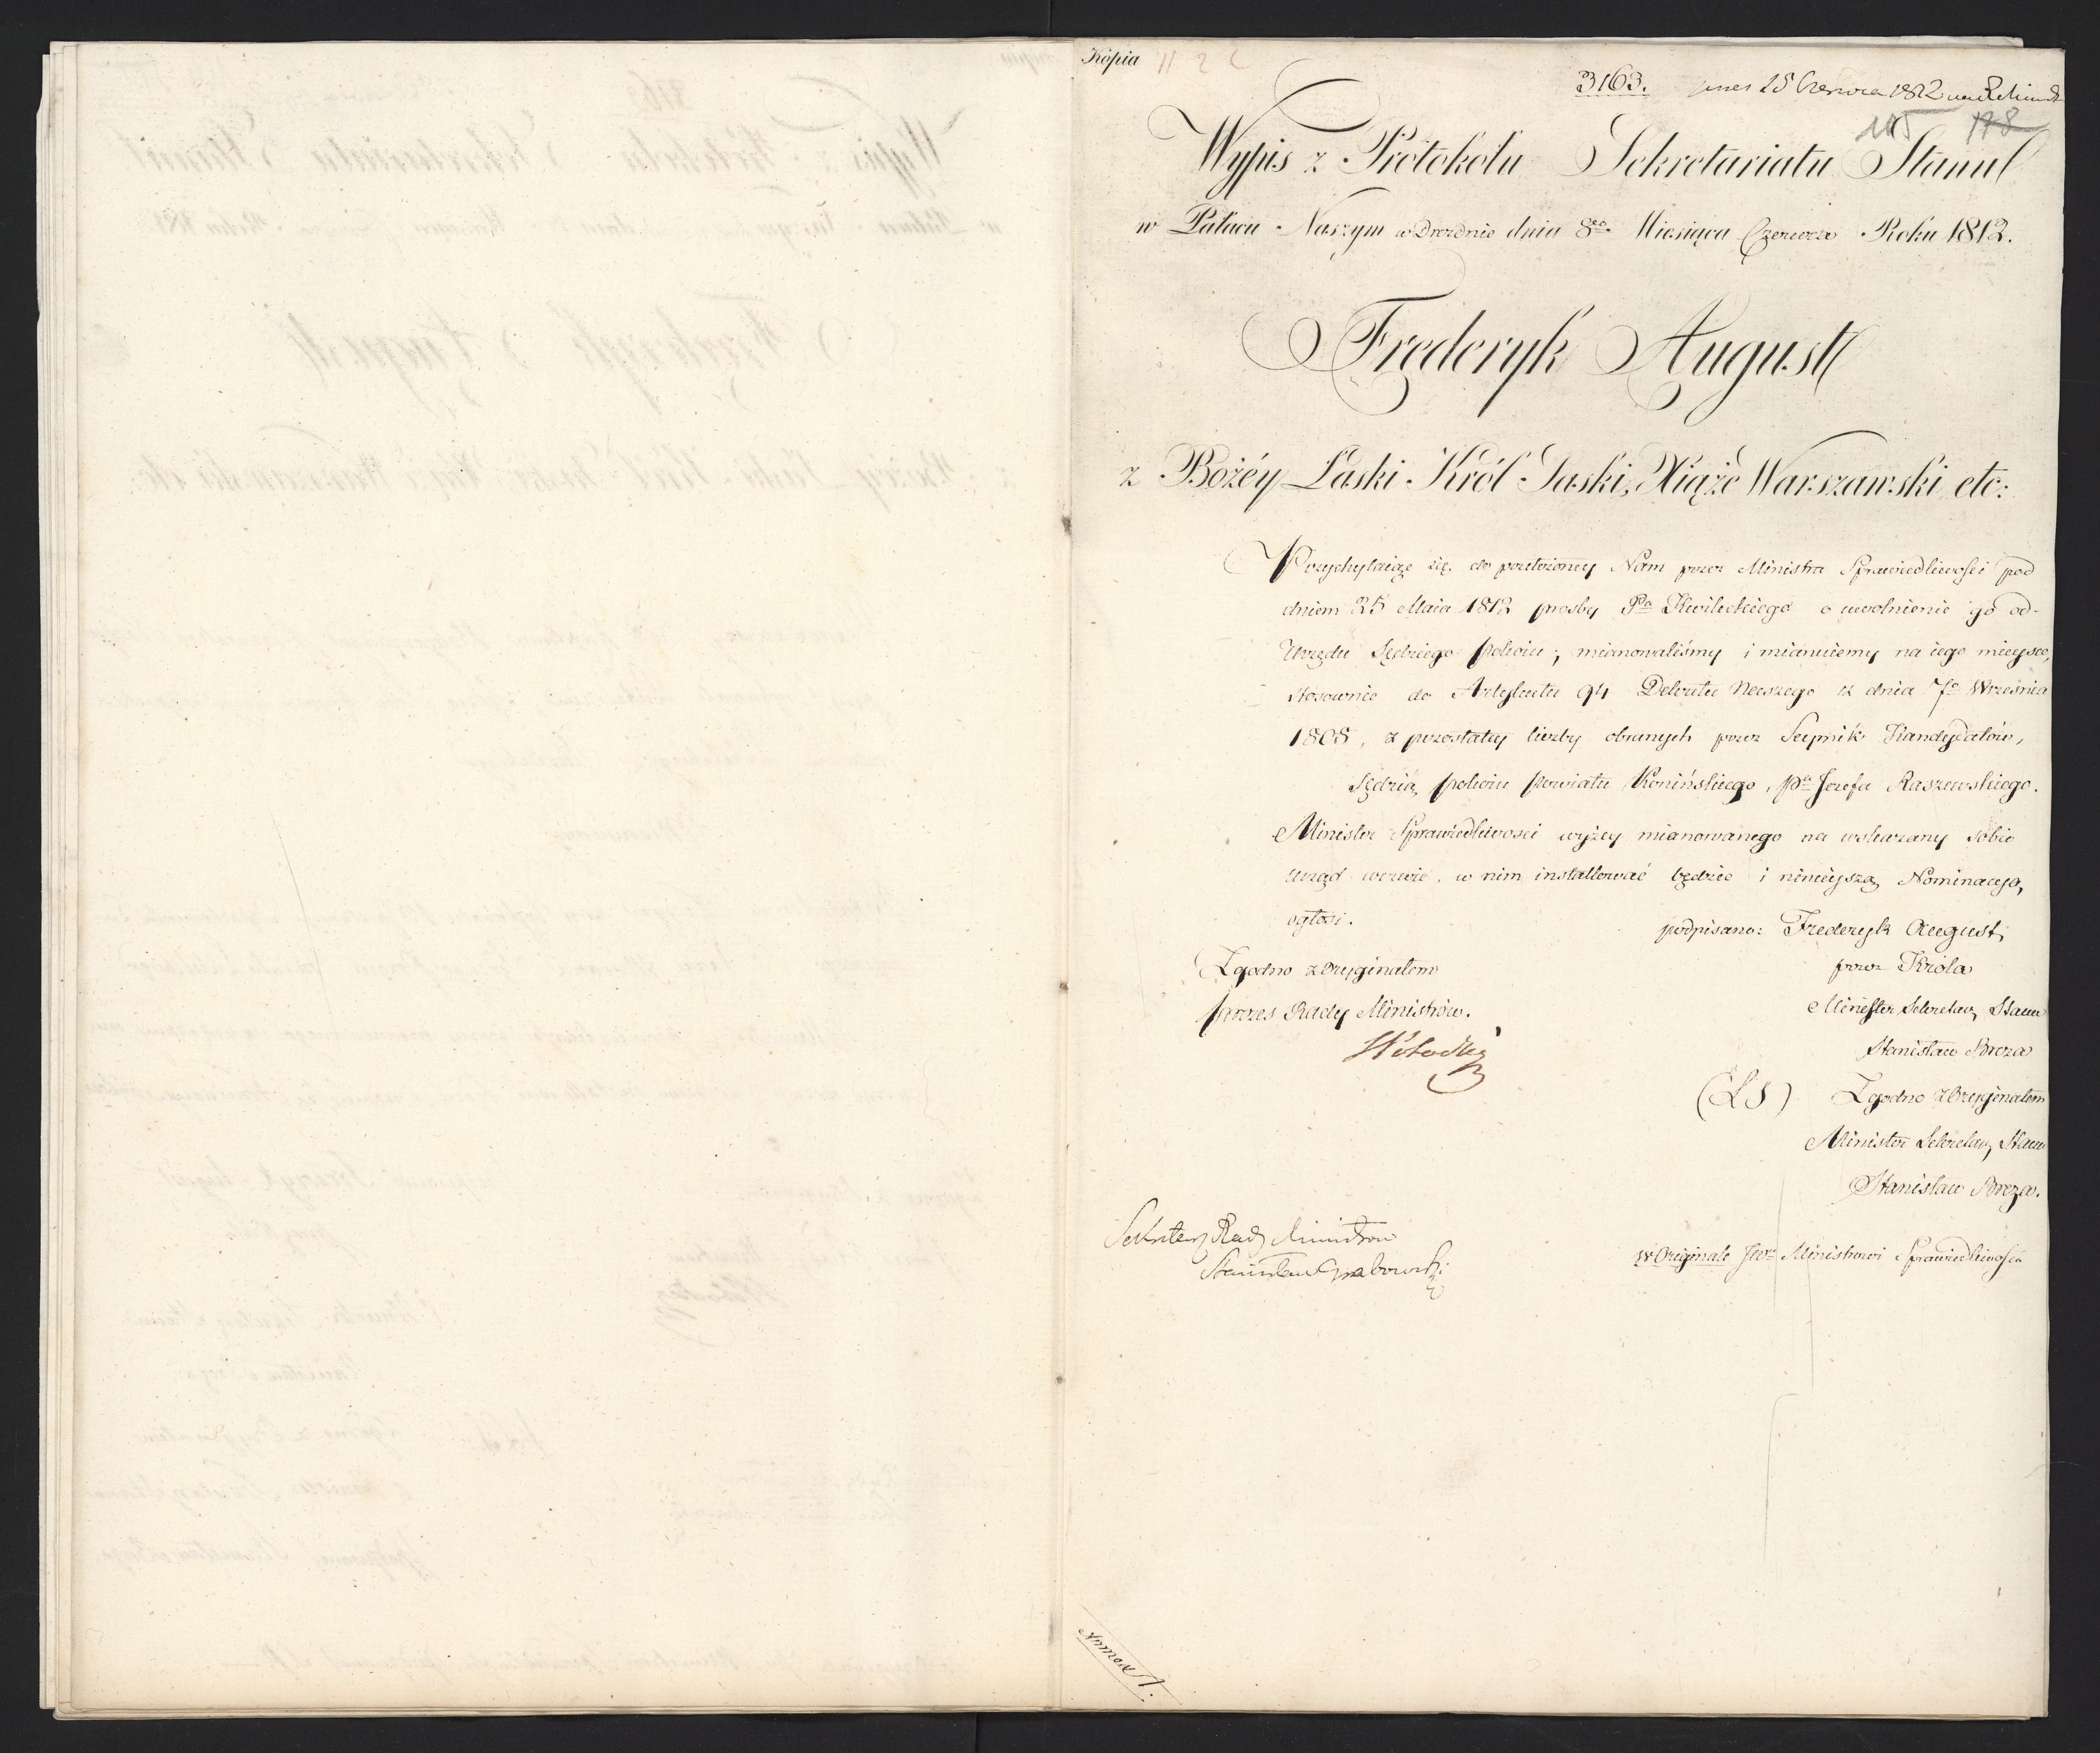 Kopia
3163. 25 Czerwca 1812
105 178
Wypis z Protokołu Sekretariatu Stanu
w Pałacu Naszym w Dreźnie dnia 8go Miesiąca Czerwca Roku 1812.
Frederyk August
z Bożéy Łaski Król Saski, Xiąże Warszawski etc:
Przychylaiąc się do przełożoney Nam przez Ministra Sprawiedliwości pod
dniem 25 Maia 1812 prosby Pa Kwileckiego o uwolnienie go od
Urzędu Sędziego pokoiu; mianowaliśmy i mianuiemy na iego mieysce,
stosownie do Artykułu 94 Dekretu Naszego z dnia 7o Września
1808, z pozostałey liczby obranych przez Seymik Kandydatów,
Sędzią pokoiu powiatu Konińskiego, Pa Jozefa Raszewskiego.
Minister Sprawiedliwości wyżey mianowanego na wskazany sobie
urząd wezwie, w nim installować będzie i ninieyszą Nominacyą,
ogłosi.
podpisano: Frederyk August,
Zgodno z Oryginałem
przez Króla
prezes Rady Ministrów.
Minister Sekretarz Stanu
Stanisław Breza
(LS) Zgodno z Oryginałem
Minister Sekretarz Stanu
Stanisław Breza.
Sekretarz Rady Ministrow
Stanisław Grabowski
w Originale JWu Ministrowi Sprawiedliwości